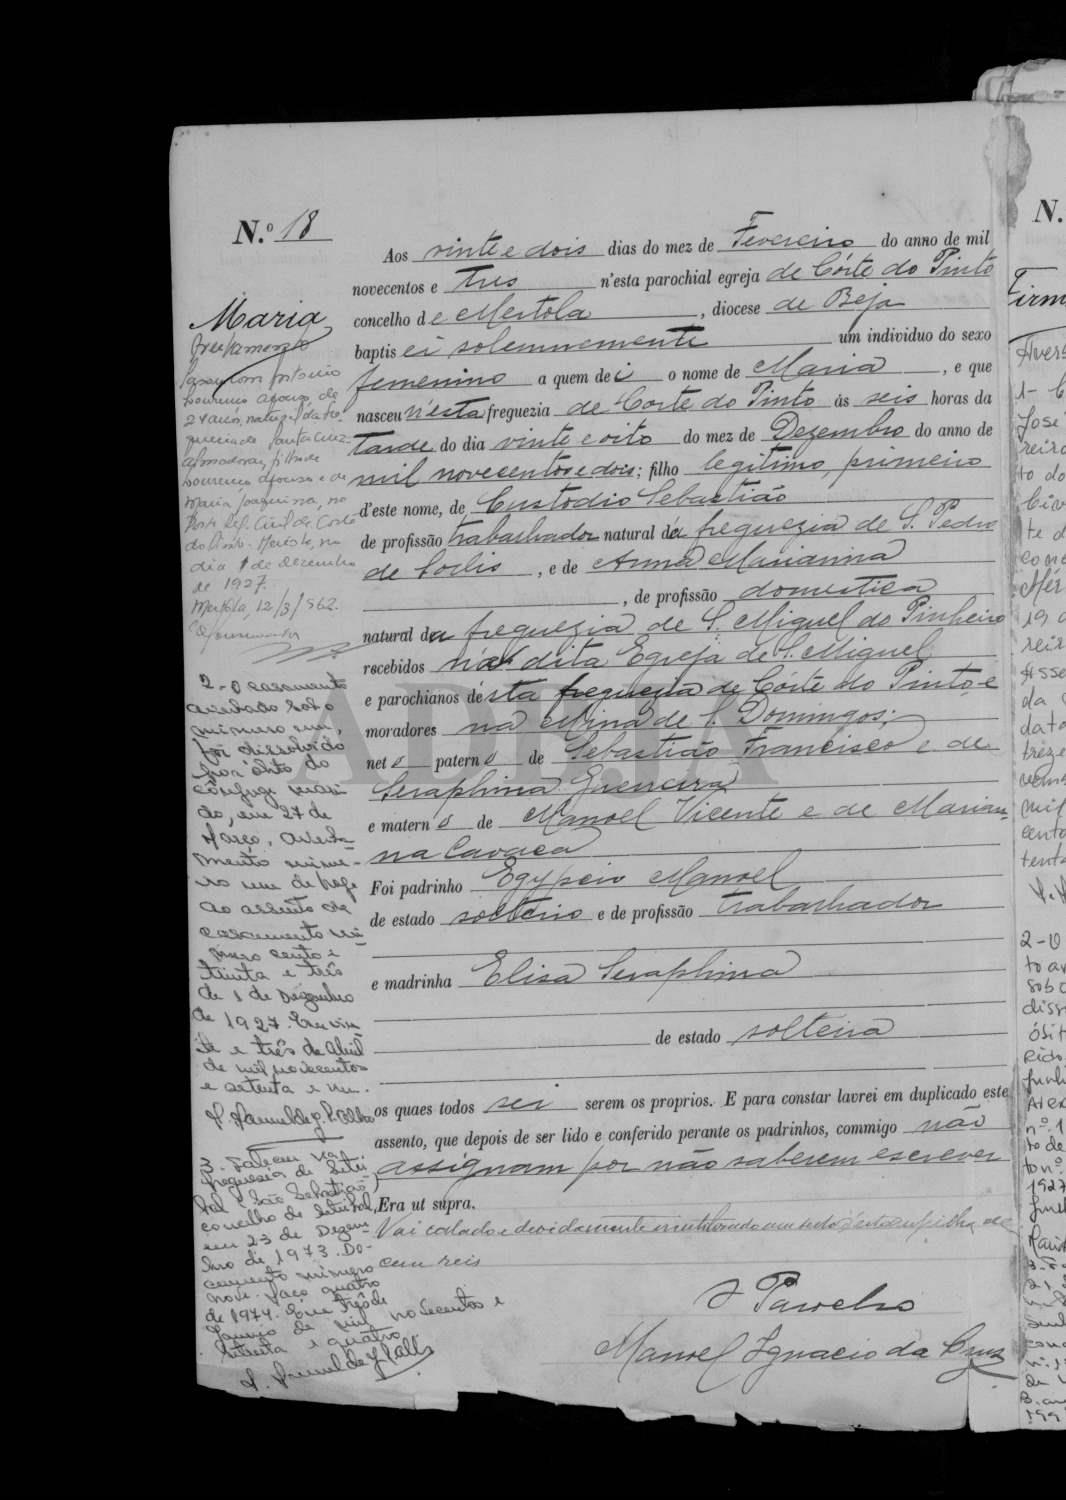 N.º 18
Maria
Casou com Antonio
Lourenço Afonso, de
24 anos, natural da fre-
guesia de Santa Cruz
Almodovar, filho de
Lourenço Afonso e de
Maria Joaquina, no
Posto Reg. Civil de Corte
do Pinto - Mertola, no
dia 1 de Dezembro
de 1927.
Mertola, 12/3/962.
2 - O casamento
averbado sob o
número um,
foi dissolvido
por óbito do
cônjuge mari-
do, em 27 de
Março, averba-
mento núme-
ro um de fogo
ao assento de
casamento nú-
mero cento e
trinta e três
de 1 de Dezembro
de 1927. Em vin-
te e três de Abril
de mil novecentos
e setenta e um.
3. Faleceu na
freguesia de Setú-
bal (São Sebastião),
concelho de Setúbal,
em 23 de Dezem-
bro de 1973. Do-
cumento número
nove. Maço quatro
de 1974. Em três de
Janeiro de mil novecentos e
setenta e quatro.
Aos vinte e dois dias do mez de Fevereiro do anno de mil
novecentos e tres n'esta parochial egreja de Córte do Pinto
concelho de Mertola, diocese de Beja
baptisei solemnemente um individuo do sexo
femenino a quem dei o nome de Maria, e que
nasceu n'esta freguezia de Corte do Pinto ás seis horas da
tarde do dia vinte e oito do mez de Dezembro do anno de
mil novecentos e dois; filho legitimo, primeiro
d'este nome, de Custodio Sebastião
de profissão trabalhador natural da freguezia de S. Pedro
de Solis, e de Anna Marianna
, de profissão domestica
natural da freguezia de S. Miguel do Pinheiro
recebidos na dita Egreja de S. Miguel
e parochianos desta freguezia de Córte do Pinto, e
moradores na Mina de S. Domingos;
neto paterno de Sebastião Francisco e de
Seraphina Guerreira
e materno de Manoel Vicente e de Marian-
na Cavaca
Foi padrinho Egypcio Manoel
de estado solteiro e de profissão trabalhador
e madrinha Elisa Seraphina
de estado solteira
os quaes todos sei serem os proprios. E para constar lavrei em duplicado este
assento, que depois de ser lido e conferido perante os padrinhos, commigo não
assignam por não saberem escrever
Era ut supra.
Vai colado e devidamente inutilisado um sello d'estampilha de
cem reis
O Parocho
Manoel Ignacio da Cruz
ADBJA